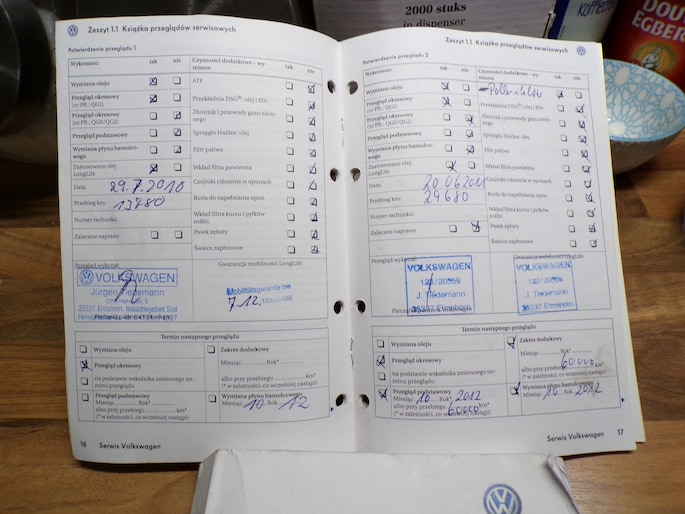 2000 stuks
in dispenser
DOU
EGBER
Zeszyt 1.1 Książka przeglądów serwisowych
Potwierdzenie przeglądu 1
Wykonano: tak nie
Wymiana oleju
Przegląd okresowy
(nr PR.: QG1)
Przegląd okresowy
(nr PR.: QG0/QG2)
Przegląd podstawowy
Wymiana płynu hamulcowego
Zastosowano olej
LongLife
Data: 29.7.2010
Przebieg km: 13780
Numer rachunku:
Zalecane naprawy
Czynności dodatkowe – wymiana: tak nie
ATF
Przekładnia DSG®: olej i filtr
Zbiornik i przewody gazu ziemnego
Sprzęgło Haldex: olej
Filtr paliwa
Wkład filtra powietrza
Czujniki ciśnienia w oponach
Butla do napełniania opon
Wkład filtra kurzu i pyłków
roślin
Pasek zębaty
Świece zapłonowe
Przegląd wykonał:
Gwarancja mobilności LongLife
VOLKSWAGEN
Jürgen Tiedemann
25337 Elmshorn, Industriegebiet Süd
Mobilitätsgarantie bis
7.12.
Termin następnego przeglądu
Wymiana oleju
Przegląd okresowy
na podstawie wskaźnika zmiennego terminu przeglądu
Przegląd podstawowy
Miesiąc ........ Rok*........
albo przy przebiegu ........ km*
(* w zależności, co wcześniej nastąpi)
Zakres dodatkowy
Miesiąc ........ Rok*........
albo przy przebiegu ........ km*
(* w zależności, co wcześniej nastąpi)
Wymiana płynu hamulcowego
Miesiąc 10 Rok 12
16 Serwis Volkswagen
Zeszyt 1.1 Książka przeglądów serwisowych
Potwierdzenie przeglądu 2
Wykonano: tak nie
Wymiana oleju
Przegląd okresowy
(nr PR.: QG1)
Przegląd okresowy
(nr PR.: QG0/QG2)
Przegląd podstawowy
Wymiana płynu hamulcowego
Zastosowano olej
LongLife
Data: 20.06.2011
Przebieg km: 29680
Numer rachunku:
Zalecane naprawy
Czynności dodatkowe – wymiana: tak nie
Pollenfilter
Przekładnia DSG®: olej i filtr
Zbiornik i przewody gazu ziemnego
Sprzęgło Haldex: olej
Filtr paliwa
Wkład filtra powietrza
Czujniki ciśnienia w oponach
Butla do napełniania opon
Wkład filtra kurzu i pyłków
roślin
Pasek zębaty
Świece zapłonowe
Przegląd wykonał:
Gwarancja mobilności LongLife
VOLKSWAGEN
J. Tiedemann
25337 Elmshorn
VOLKSWAGEN
J. Tiedemann
25337 Elmshorn
Termin następnego przeglądu
Wymiana oleju
Przegląd okresowy
na podstawie wskaźnika zmiennego terminu przeglądu
Przegląd podstawowy
Miesiąc 10 Rok* 2012
albo przy przebiegu 60000 km*
(* w zależności, co wcześniej nastąpi)
Zakres dodatkowy
Miesiąc ........ Rok*
albo przy przebiegu 60000 km*
(* w zależności, co wcześniej nastąpi)
Wymiana płynu hamulcowego
Miesiąc 10 Rok 2012
Serwis Volkswagen 17